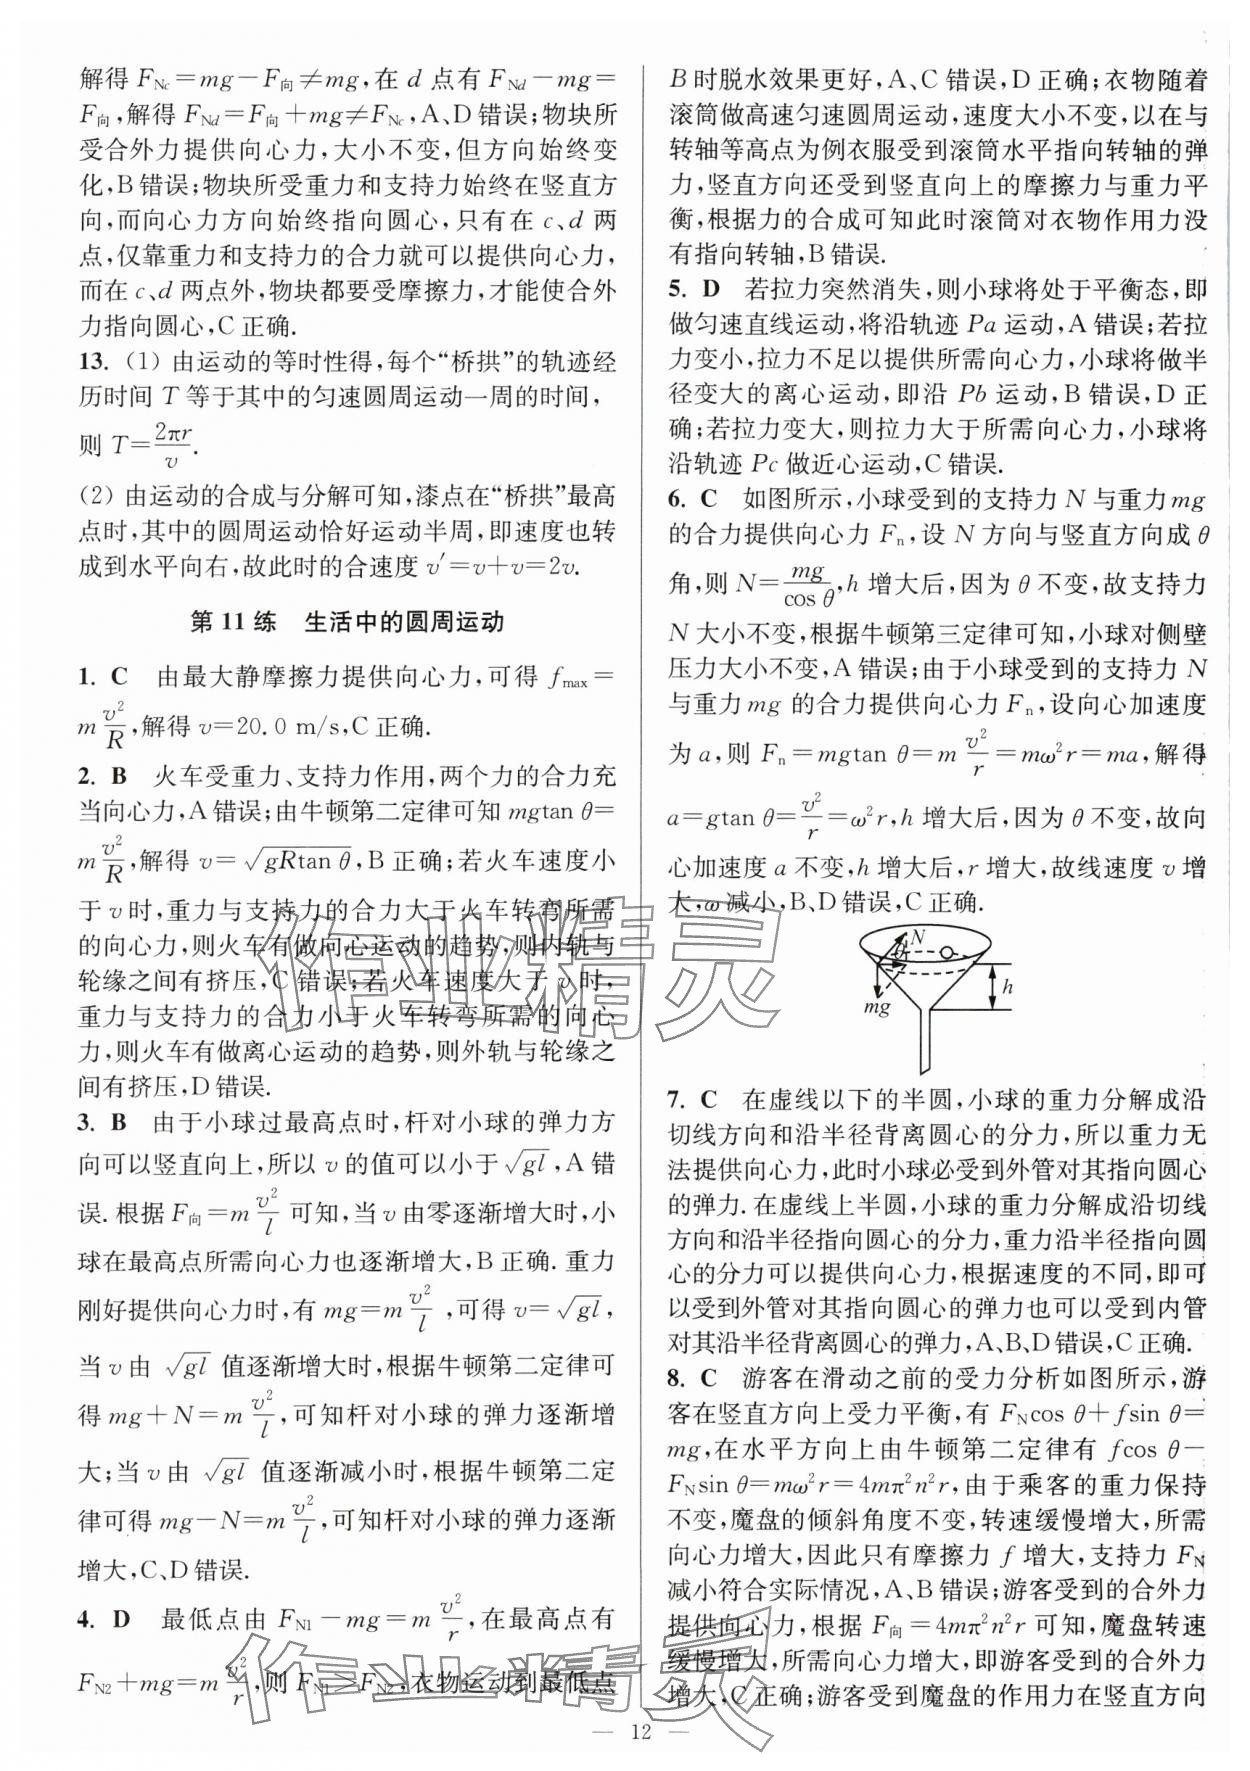 解得 F_Nc＝mg－F_向≠mg,在 d 点有 F_Nd－mg＝
F_向,解得 F_Nd＝F_向＋mg≠F_Nc,A、D错误;物块所
受合外力提供向心力,大小不变,但方向始终变
化,B错误;物块所受重力和支持力始终在竖直方
向,而向心力方向始终指向圆心,只有在 c、d 两
点,仅靠重力和支持力的合力就可以提供向心力,
而在 c、d 两点外,物块都要受摩擦力,才能使合外
力指向圆心,C正确.
13. (1) 由运动的等时性得,每个“桥拱”的轨迹经
历时间 T 等于其中的匀速圆周运动一周的时间,
则 T＝2πr/v.
(2) 由运动的合成与分解可知,漆点在“桥拱”最高
点时,其中的圆周运动恰好运动半周,即速度也转
成到水平向右,故此时的合速度 v′＝v＋v＝2v.
第 11 练　生活中的圆周运动
1. C　由最大静摩擦力提供向心力,可得 f_max＝
m v²/R,解得 v＝20.0 m/s,C正确.
2. B　火车受重力、支持力作用,两个力的合力充
当向心力,A错误;由牛顿第二定律可知 mgtan θ＝
m v²/R,解得 v＝√(gRtan θ),B正确;若火车速度小
于 v时,重力与支持力的合力大于火车转弯所需
的向心力,则火车有做向心运动的趋势,则内轨与
轮缘之间有挤压,C错误;若火车速度大于 v时,
重力与支持力的合力小于火车转弯所需的向心
力,则火车有做离心运动的趋势,则外轨与轮缘之
间有挤压,D错误.
3. B　由于小球过最高点时,杆对小球的弹力方
向可以竖直向上,所以 v 的值可以小于√(gl),A错
误.根据 F_向＝m v²/l 可知,当 v由零逐渐增大时,小
球在最高点所需向心力也逐渐增大,B正确.重力
刚好提供向心力时,有 mg＝m v²/l ,可得 v＝√(gl),
当 v 由 √(gl) 值逐渐增大时,根据牛顿第二定律可
得 mg＋N＝m v²/l,可知杆对小球的弹力逐渐增
大;当 v 由 √(gl) 值逐渐减小时,根据牛顿第二定
律可得 mg－N＝m v²/l,可知杆对小球的弹力逐渐
增大,C、D错误.
4. D　最低点由 F_N1－mg＝m v²/r,在最高点有
F_N2＋mg＝m v²/r,则 F_N1＞F_N2,衣物运动到最低点
B时脱水效果更好,A、C错误,D正确;衣物随着
滚筒做高速匀速圆周运动,速度大小不变,以在与
转轴等高点为例衣服受到滚筒水平指向转轴的弹
力,竖直方向还受到竖直向上的摩擦力与重力平
衡,根据力的合成可知此时滚筒对衣物作用力没
有指向转轴,B错误.
5. D　若拉力突然消失,则小球将处于平衡态,即
做匀速直线运动,将沿轨迹 Pa 运动,A错误;若拉
力变小,拉力不足以提供所需向心力,小球将做半
径变大的离心运动,即沿 Pb 运动,B错误,D正
确;若拉力变大,则拉力大于所需向心力,小球将
沿轨迹 Pc 做近心运动,C错误.
6. C　如图所示,小球受到的支持力 N 与重力mg
的合力提供向心力 F_n,设 N 方向与竖直方向成 θ
角,则 N＝mg/cos θ,h 增大后,因为 θ 不变,故支持力
N 大小不变,根据牛顿第三定律可知,小球对侧壁
压力大小不变,A错误;由于小球受到的支持力 N
与重力 mg 的合力提供向心力 F_n,设向心加速度
为 a,则 F_n＝mgtan θ＝m v²/r＝mω²r＝ma,解得
a＝gtan θ＝v²/r＝ω²r,h 增大后,因为 θ 不变,故向
心加速度 a 不变,h 增大后,r 增大,故线速度 v增
大,ω减小,B、D错误,C正确.
N
θ
mg
h
7. C　在虚线以下的半圆,小球的重力分解成沿
切线方向和沿半径背离圆心的分力,所以重力无
法提供向心力,此时小球必受到外管对其指向圆心
的弹力.在虚线上半圆,小球的重力分解成沿切线
方向和沿半径指向圆心的分力,重力沿半径指向圆
心的分力可以提供向心力,根据速度的不同,即可
以受到外管对其指向圆心的弹力也可以受到内管
对其沿半径背离圆心的弹力,A、B、D错误,C正确.
8. C　游客在滑动之前的受力分析如图所示,游
客在竖直方向上受力平衡,有 F_Ncos θ＋fsin θ＝
mg,在水平方向上由牛顿第二定律有 fcos θ－
F_Nsin θ＝mω²r＝4mπ²n²r,由于乘客的重力保持
不变,魔盘的倾斜角度不变,转速缓慢增大,所需
向心力增大,因此只有摩擦力 f 增大,支持力 F_N
减小符合实际情况,A、B错误;游客受到的合外力
提供向心力,根据 F_向＝4mπ²n²r 可知,魔盘转速
缓慢增大,所需向心力增大,即游客受到的合外力
增大,C正确;游客受到魔盘的作用力在竖直方向
— 12 —
作业精灵
作业精灵